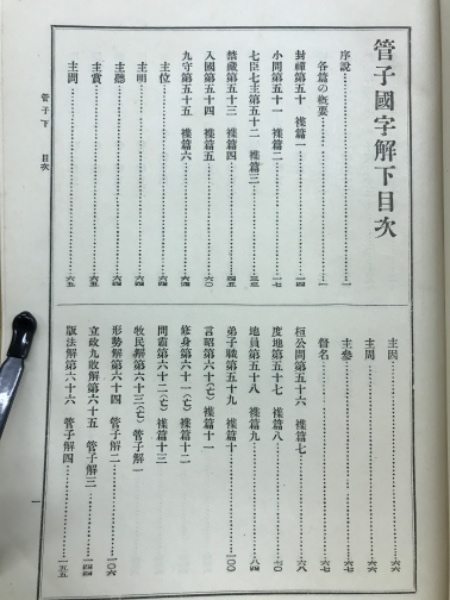 管子國字解下目次
序說…………一
各篇の概要…………一
封禪第五十　襍篇一…………一四
小問第五十一　襍篇二…………一七
七臣七主第五十二　襍篇三…………三三
禁藏第五十三　襍篇四…………四五
入國第五十四　襍篇五…………六〇
九守第五十五　襍篇六…………六四
主位…………六四
主明…………六四
主聽…………六四
主賞…………六五
主問…………六五
主因…………六六
主周…………六六
主參…………六七
督名…………六七
桓公問第五十六　襍篇七…………六八
度地第五十七　襍篇八…………七〇
地員第五十八　襍篇九…………八四
弟子職第五十九　襍篇十…………一〇〇
言昭第六十(亡)　襍篇十一
修身第六十一(亡)　襍篇十二
問霸第六十二(亡)　襍篇十三
牧民解第六十三(亡)　管子解一
形勢解第六十四　管子解二…………一〇六
立政九敗解第六十五　管子解三…………一四四
版法解第六十六　管子解四…………一五五
管子下　目次
一